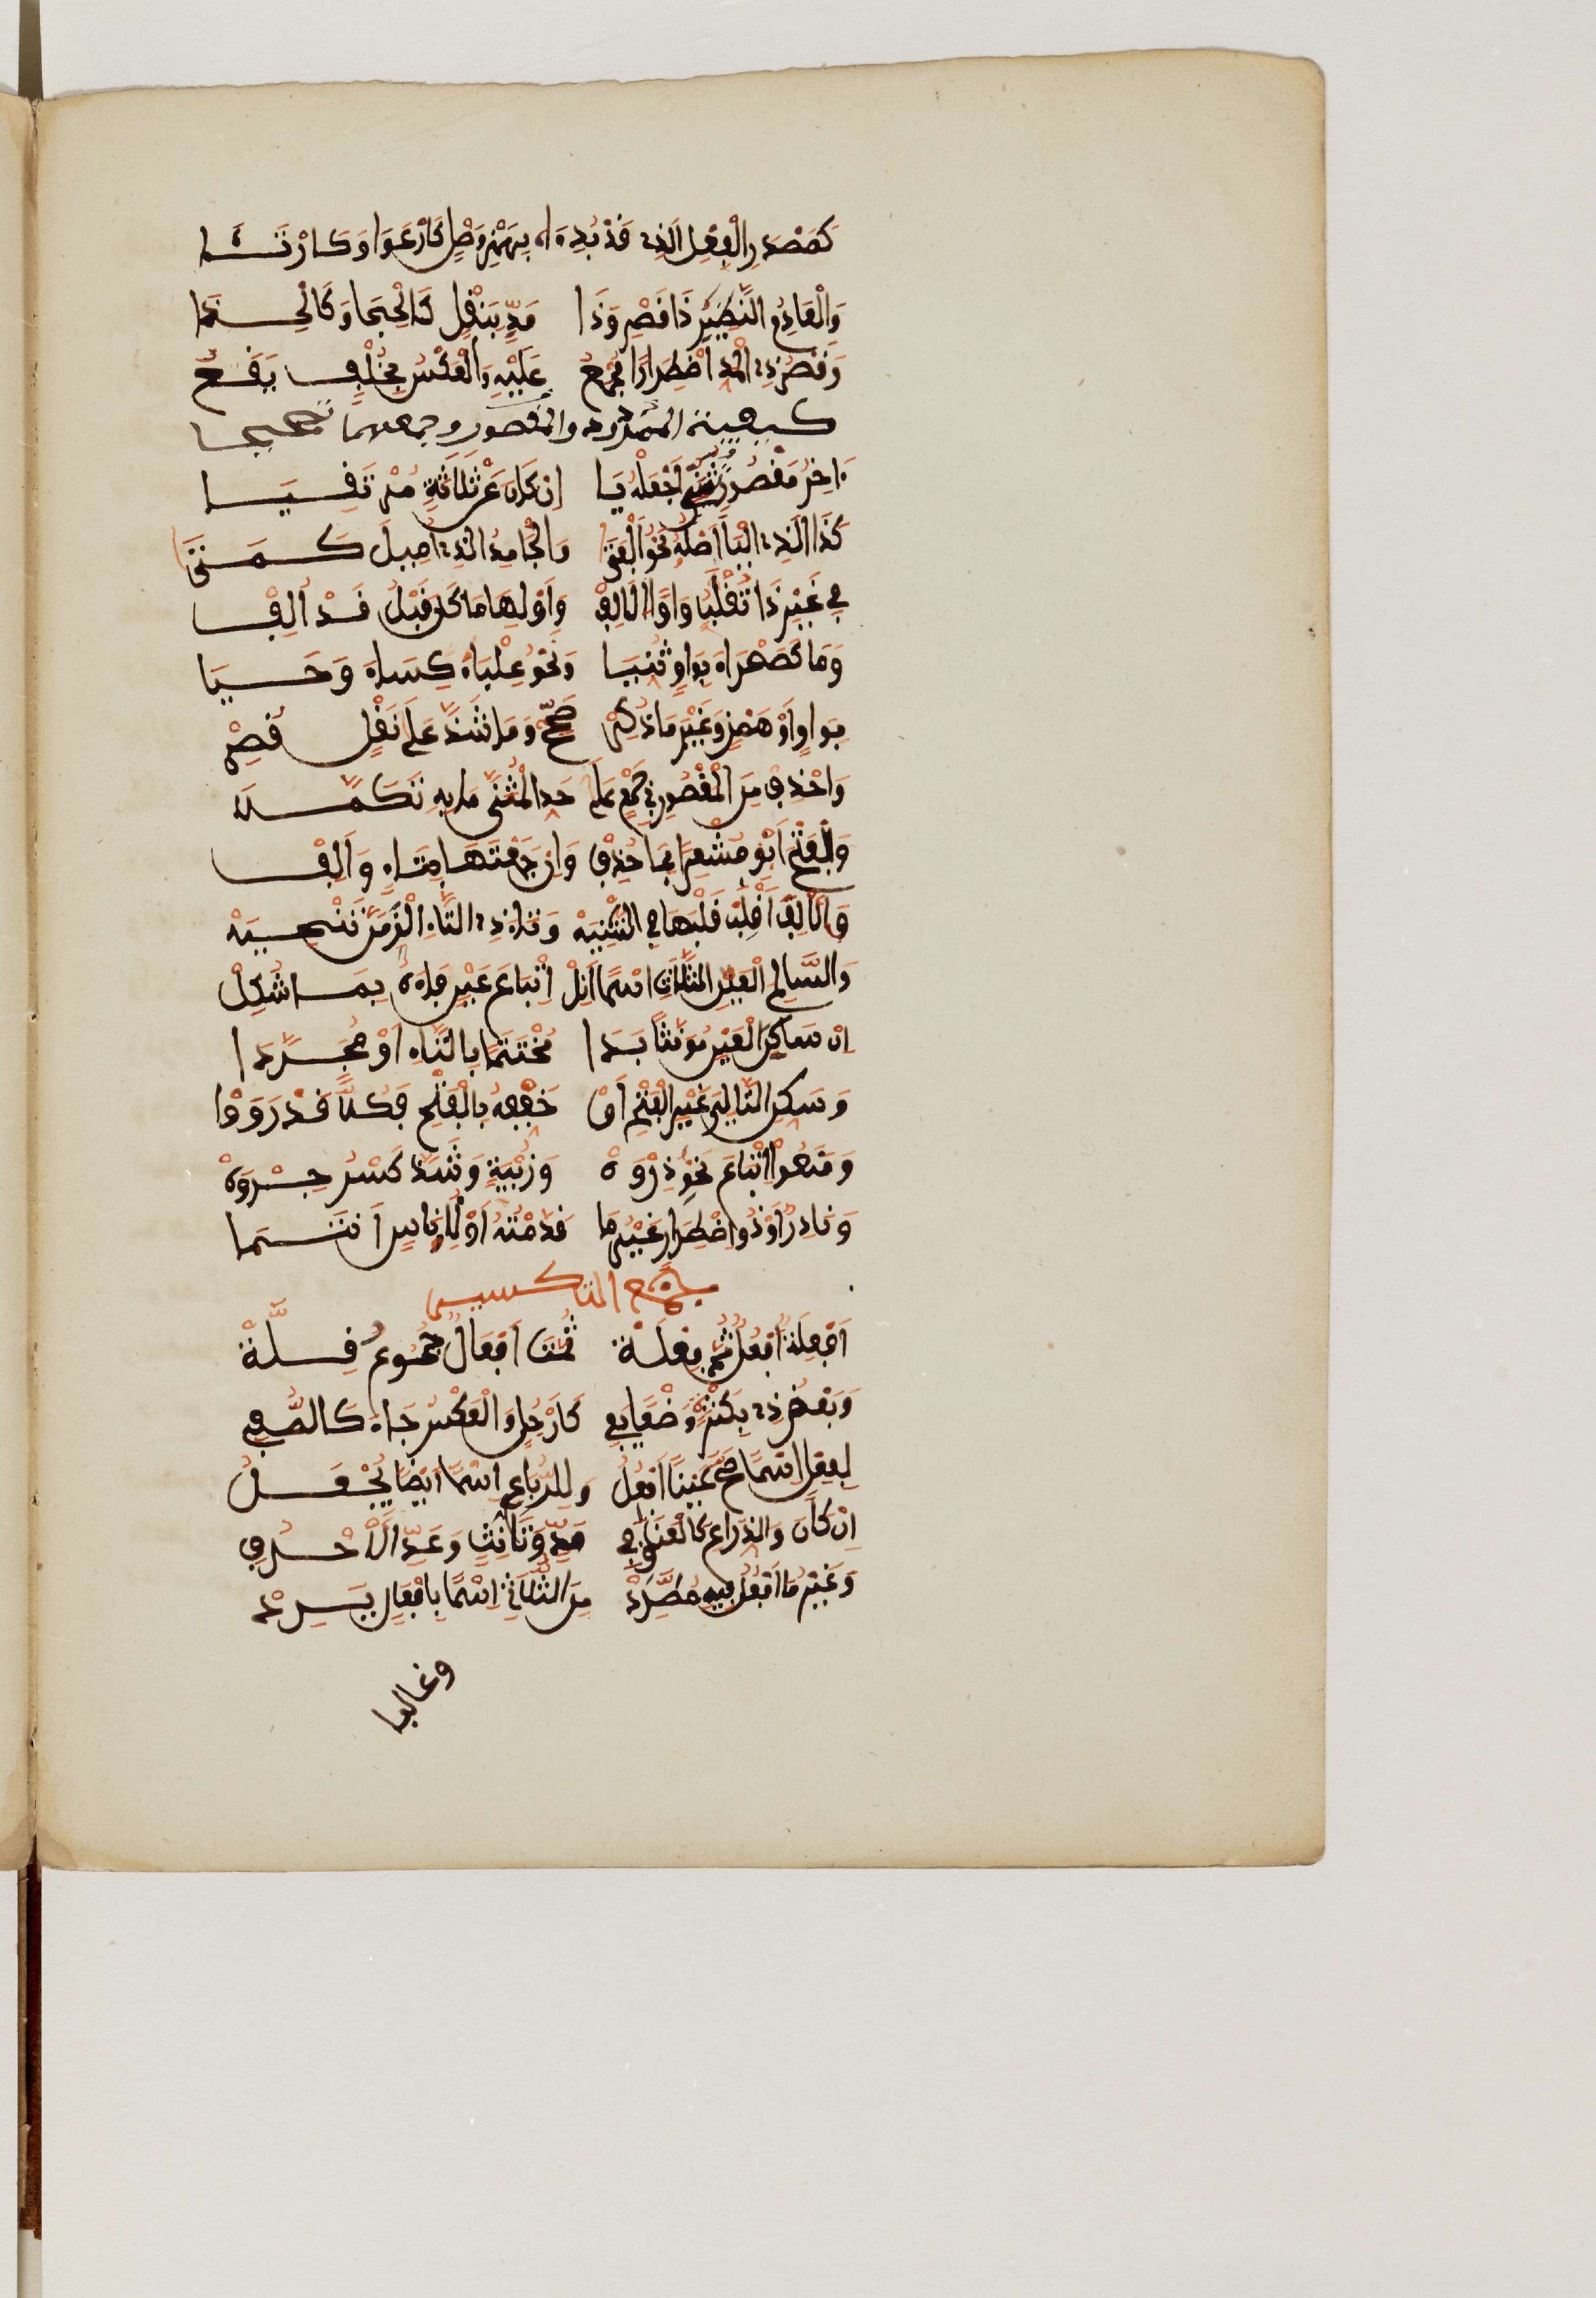 كَمَصْدَرِ الْفِعْلِ الَّذِي قَدْ بُدِءَا بِهَمْزِ وَصْلٍ كَارْعَوَا وَكَارْتَئَا
وَالْعَادِمُ النَّظِيرِ ذَا قَصْرٍ وَذَا مَدٍّ بِنَقْلٍ كَالْحِجَا وَكَالْحِذَا
وَقَصْرُ ذِي الْمَدِّ اضْطِرَارًا مُجْمَعُ عَلَيْهِ وَالْعَكْسُ بِخُلْفٍ يَقَعُ
كيفية الممدود والمقصور وجمعهما تصحيحا
ءَاخِرَ مَقْصُورٍ تُثَنِّي اجْعَلْهُ يَا إِنْ كَانَ عَنْ ثَلَاثَةٍ مُرْتَقِيَا
كَذَا الَّذِي الْيَا أَصْلُهُ نَحْوُ الْفَتَى وَالْجَامِدُ الَّذِي أُمِيلَ كَمَتَى
فِي غَيْرِ ذَا تُقْلَبُ وَاوًا الْأَلِفْ وَأَوْلِهَا مَا كَانَ قَبْلُ قَدْ أُلِفْ
وَمَا كَصَحْرَاءَ بِوَاوٍ ثُنِّيَا وَنَحْوُ عِلْبَاءٍ كِسَاءٍ وَحَيَا
بِوَاوٍ أَوْ هَمْزٍ وَغَيْرَ مَا ذُكِرْ صَحِّحْ وَمَا شَذَّ عَلَى نَقْلٍ قُصِرْ
وَاحْذِفْ مِنَ الْمَقْصُورِ فِي جَمْعٍ عَلَى حَدِّ الْمُثَنَّى مَا بِهِ تَكَمَّلَا
وَالْفَتْحَ أَبْقِ مُشْعِرًا بِمَا حُذِفْ وَإِنْ جَمَعْتَهَا بِتَاءٍ وَأَلِفْ
وَالْأَلِفَ اقْلِبْ قَلْبَهَا فِي التَّثْنِيَهْ وَتَاءَ ذِي التَّاءِ الْزِمَنَّ تَنْحِيَهْ
وَالسَّالِمَ الْعَيْنِ الثُّلَاثِي اسْمًا أَنِلْ إِتْبَاعَ عَيْنٍ فَاءَهُ بِمَا شُكِلْ
إِنْ سَاكِنَ الْعَيْنِ مُؤَنَّثًا بَدَا مُخْتَتَمًا بِالتَّاءِ أَوْ مُجَرَّدَا
وَسَكِّنِ التَّالِيَ غَيْرَ الْفَتْحِ أَوْ خَفِّفْهُ بِالْفَتْحِ فَكُلًّا قَدْ رَوَوْا
وَمَنَعُوا إِتْبَاعَ نَحْوِ ذِرْوَهْ وَزُبْيَةٍ وَشَذَّ كَسْرُ جِرْوَهْ
وَنَادِرٌ أَوْ ذُو اضْطِرَارٍ غَيْرُ مَا قَدَّمْتُهُ أَوْ لِأُنَاسٍ انْتَمَا
جمع التكسير
أَفْعِلَةٌ أَفْعُلُ ثُمَّ فِعْلَةْ ثُمَّتَ أَفْعَالٌ جُمُوعُ قِلَّةْ
وَبَعْضُ ذِي بِكَثْرَةٍ وَضْعًا يَفِي كَأَرْجُلٍ وَالْعَكْسُ جَاءَ كَالصُّفِي
لِفَعْلٍ اسْمًا صَحَّ عَيْنًا أَفْعُلُ وَلِلرُّبَاعِي اسْمًا أَيْضًا يُجْعَلُ
إِنْ كَانَ وَالذِّرَاعِ كَالْعَنَاقِ فِي مَدٍّ وَتَأْنِيثٍ وَعَدِّ الْأَحْرُفِ
وَغَيْرُ مَا أَفْعُلُ فِيهِ مُطَّرِدْ مِنَ الثُّلَاثِي اسْمًا بِأَفْعَالٍ يَرِدْ
وغالبا